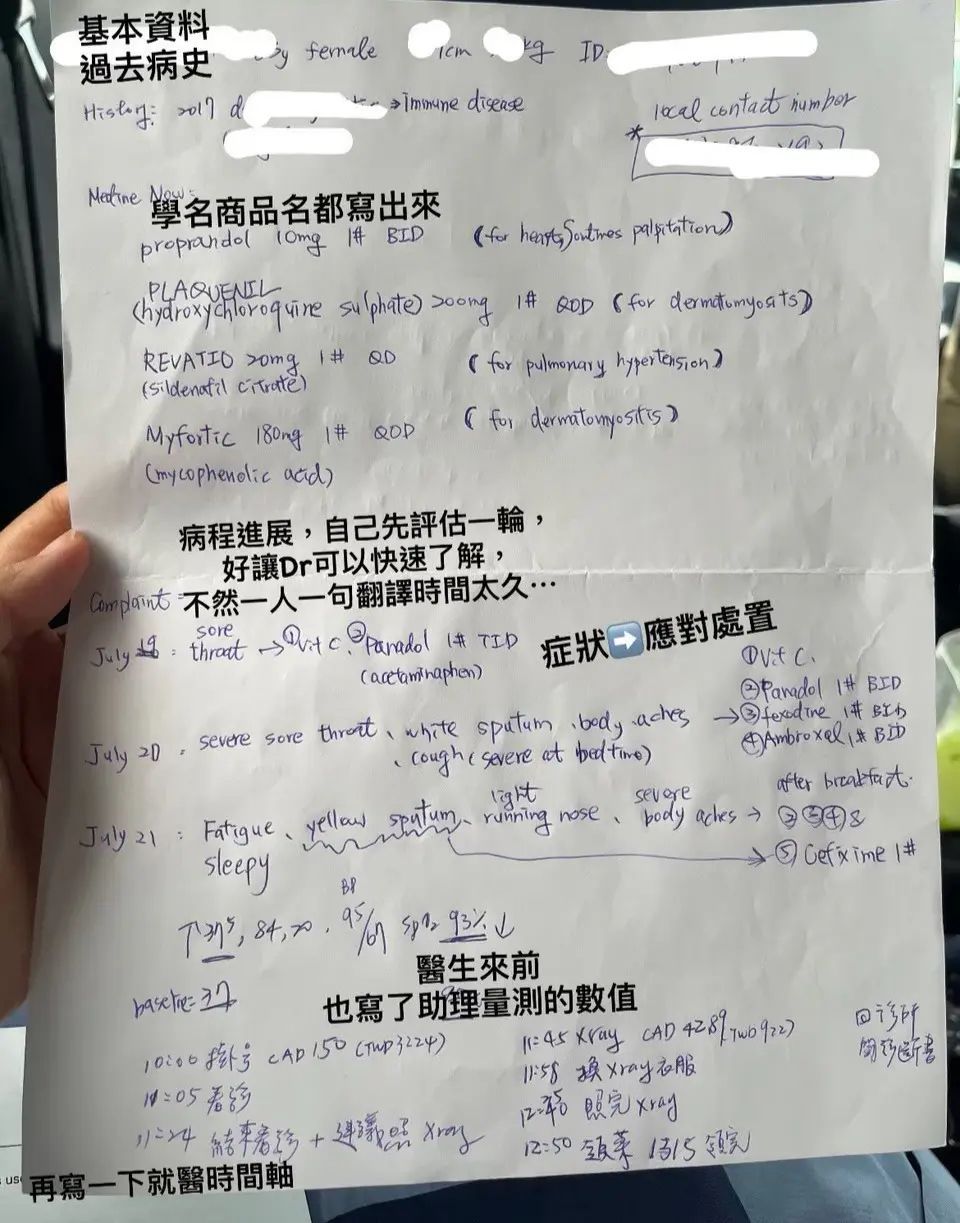 基本資料
過去病史
female cm kg ID:
History: 2017 → immune disease
local contact number
*
Medine Now:
學名商品名都寫出來
proprandol 10mg 1# BID (for heart, Somtimes palpitation)
PLAQUENIL
(hydroxychloroquine sulphate) 200mg 1# QOD (for dermatomyosits)
REVATIO 20mg 1# QD (for pulmonary hypertension)
(sildenafil citrate)
Myfortic 180mg 1# QOD (for dermatomyositis)
(mycophenolic acid)
病程進展，自己先評估一輪，
好讓Dr可以快速了解，
不然一人一句翻譯時間太久⋯
Complaint:
July 19: sore throat → ①Vit C. ②Panadol 1# TID
(acetaminaphen)
症狀➡️應對處置
July 20: severe sore throat、white sputum、body aches
、cough (severe at bedtime)
→ ①Vit C.
②Panadol 1# BID
③fexodine 1# BID
④Ambroxal 1# BID
July 21: Fatigue、yellow sputum、light running nose、severe body aches →
sleepy
after breakfast.
②③④&
⑤Cefixime 1#
↑37⁵, 84, 20, BP 95/67 SpO₂ 93%↓
baseline=37
醫生來前
也寫了助理量測的數值
10:00 掛號 CAD 150 (TWD3224)
11:05 看診
11:24 結束看診 + 建議照 Xray
11:45 Xray CAD 42.89 (TWD922)
11:58 換Xray衣服
照完Xray
12:50 領藥 13:15 領完
回診所
開診斷書
再寫一下就醫時間軸